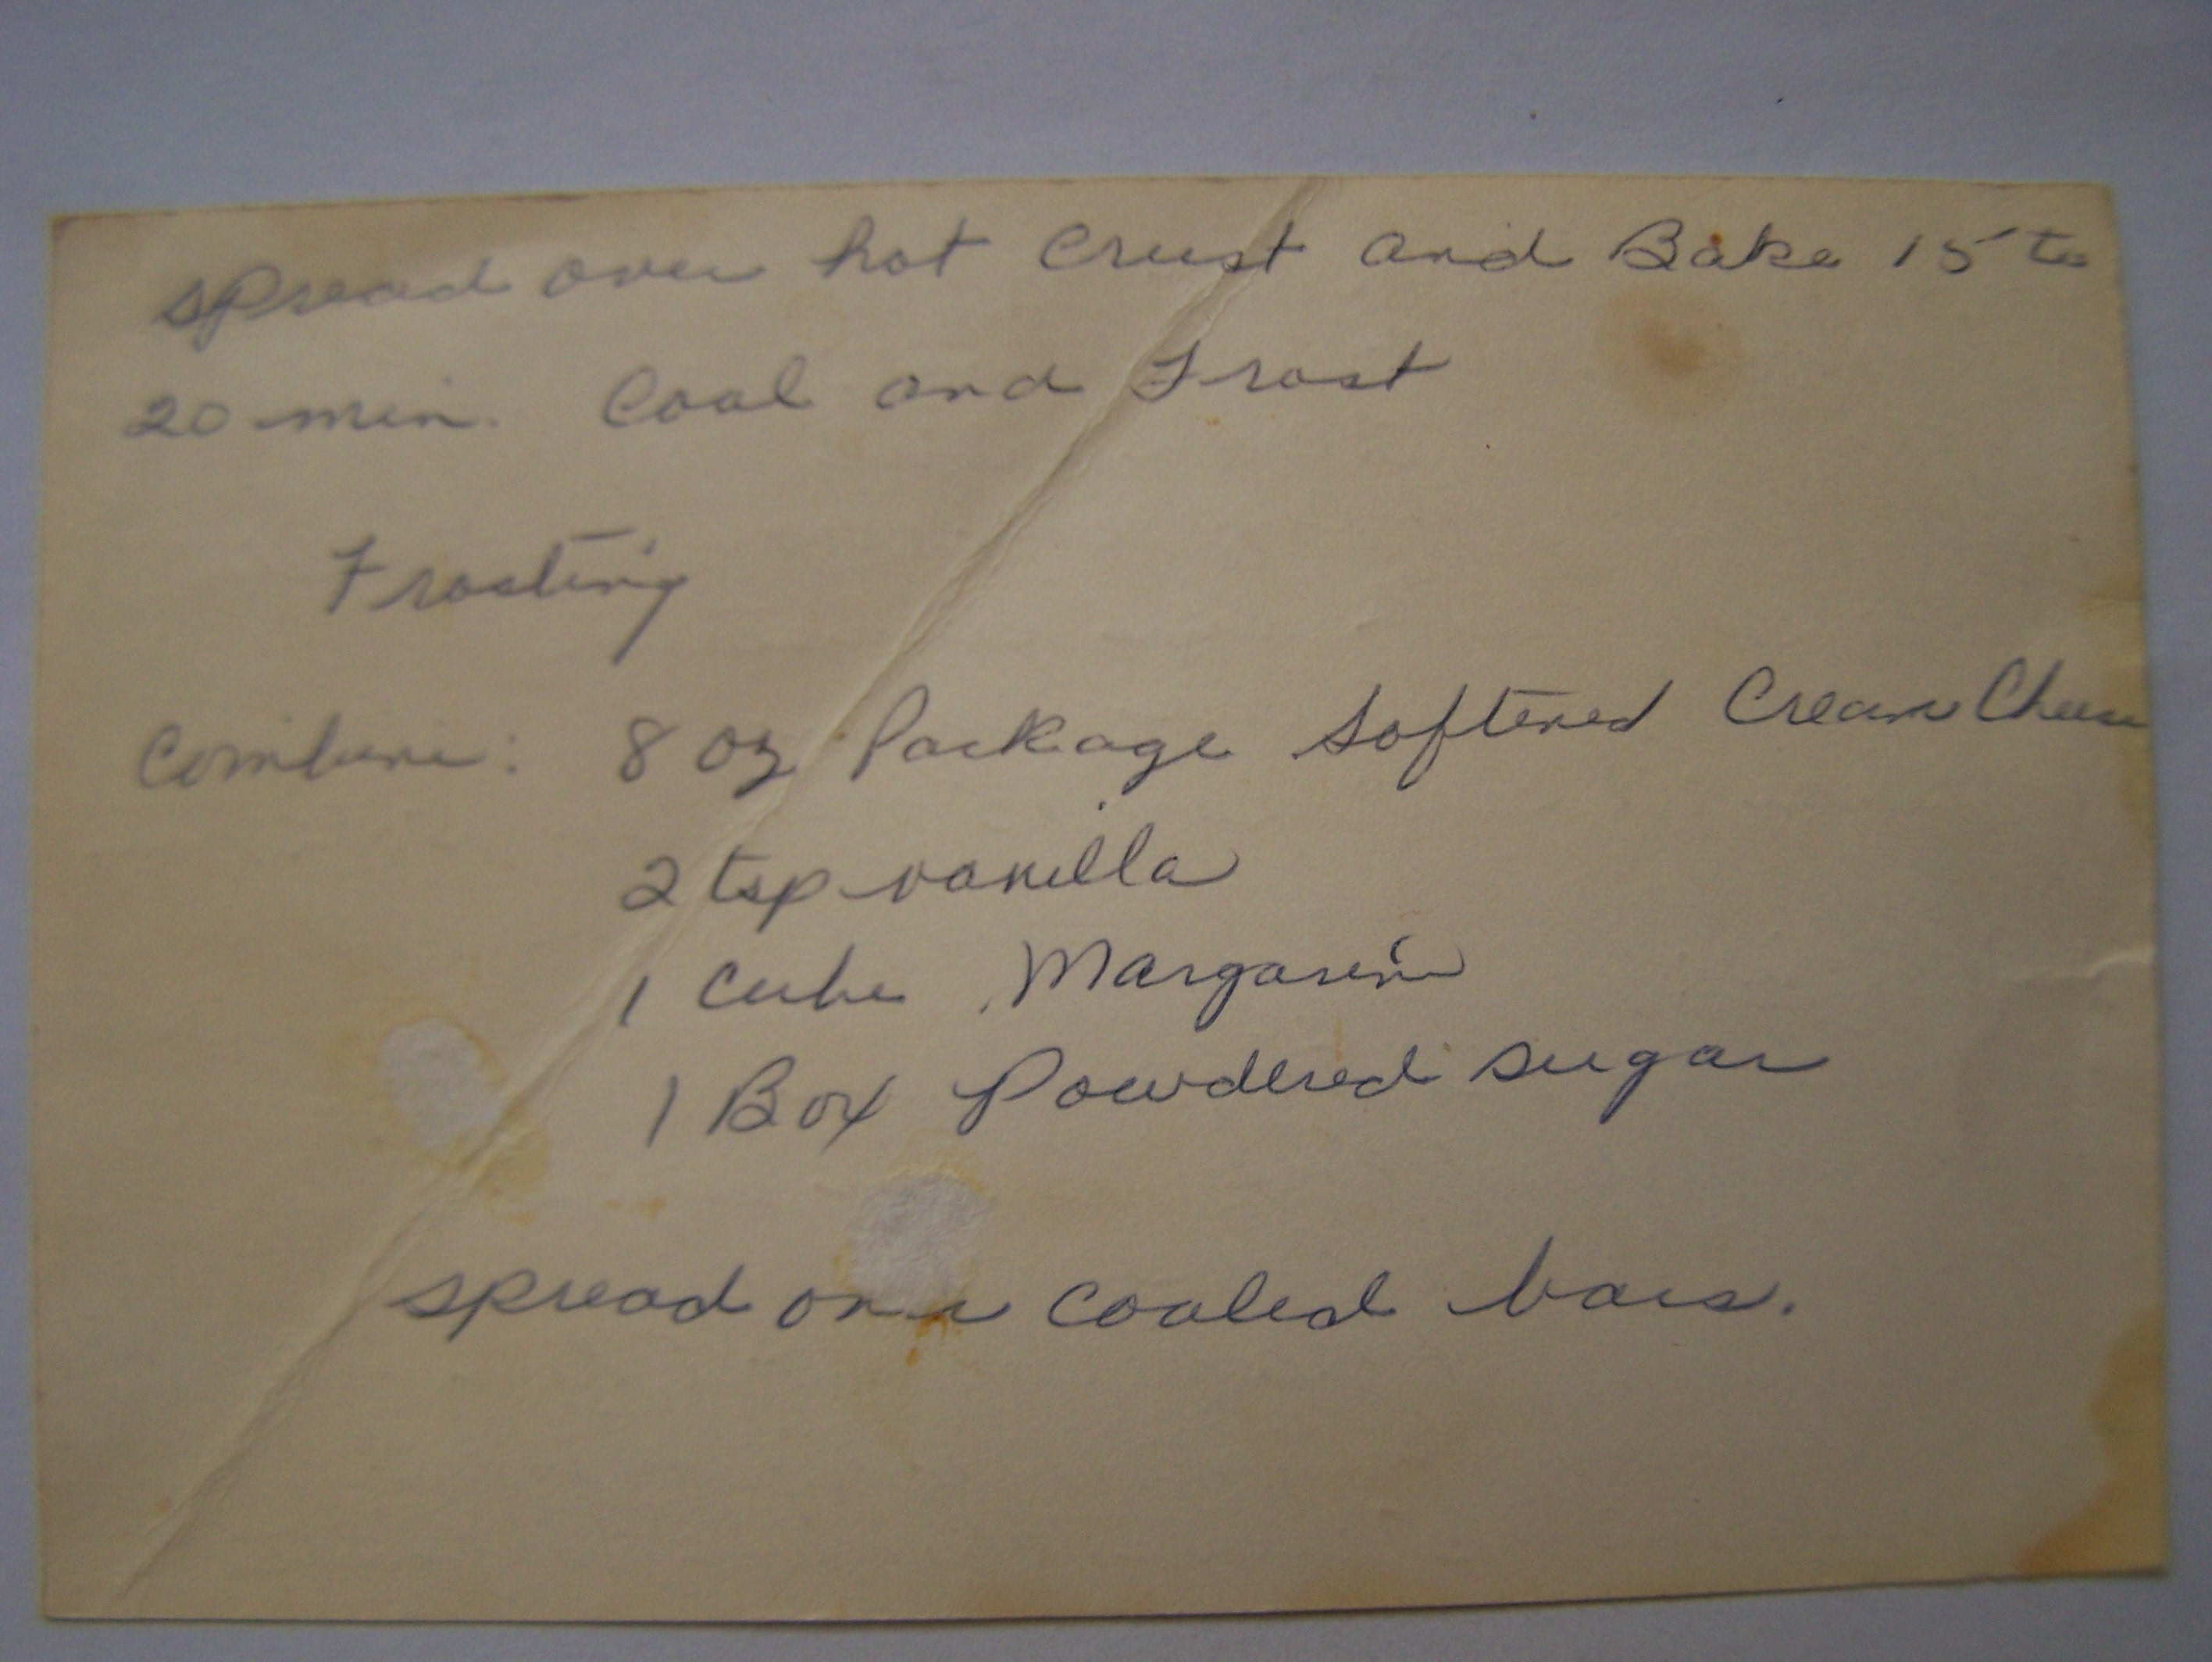 spread over hot Crust and Bake 15 to
20 min. Cool and Frost
Frosting
Combine: 8 oz Package Softened Cream Cheese
2 tsp vanilla
1 Cube Margarine
1 Box Powdered sugar
spread over cooled bars.